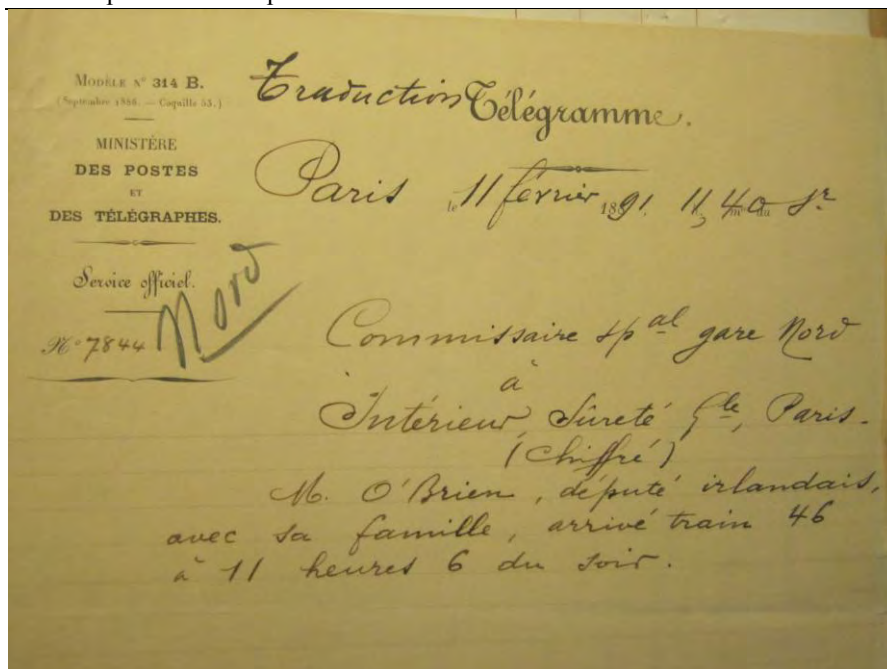 MODÈLE N° 314 B.
(Septembre 1886. — Coquille 55.)
MINISTÈRE
DES POSTES
ET
DES TÉLÉGRAPHES.
Service officiel.
N° 7844
Nord
Traduction Télégramme.
Paris le 11 février 1891. 11,40 du sr
Commissaire spal gare Nord
à
Intérieur, Sûreté Gle, Paris.
(Chiffré)
M. O'Brien, député irlandais,
avec sa famille, arrivé train 46
à 11 heures 6 du soir.